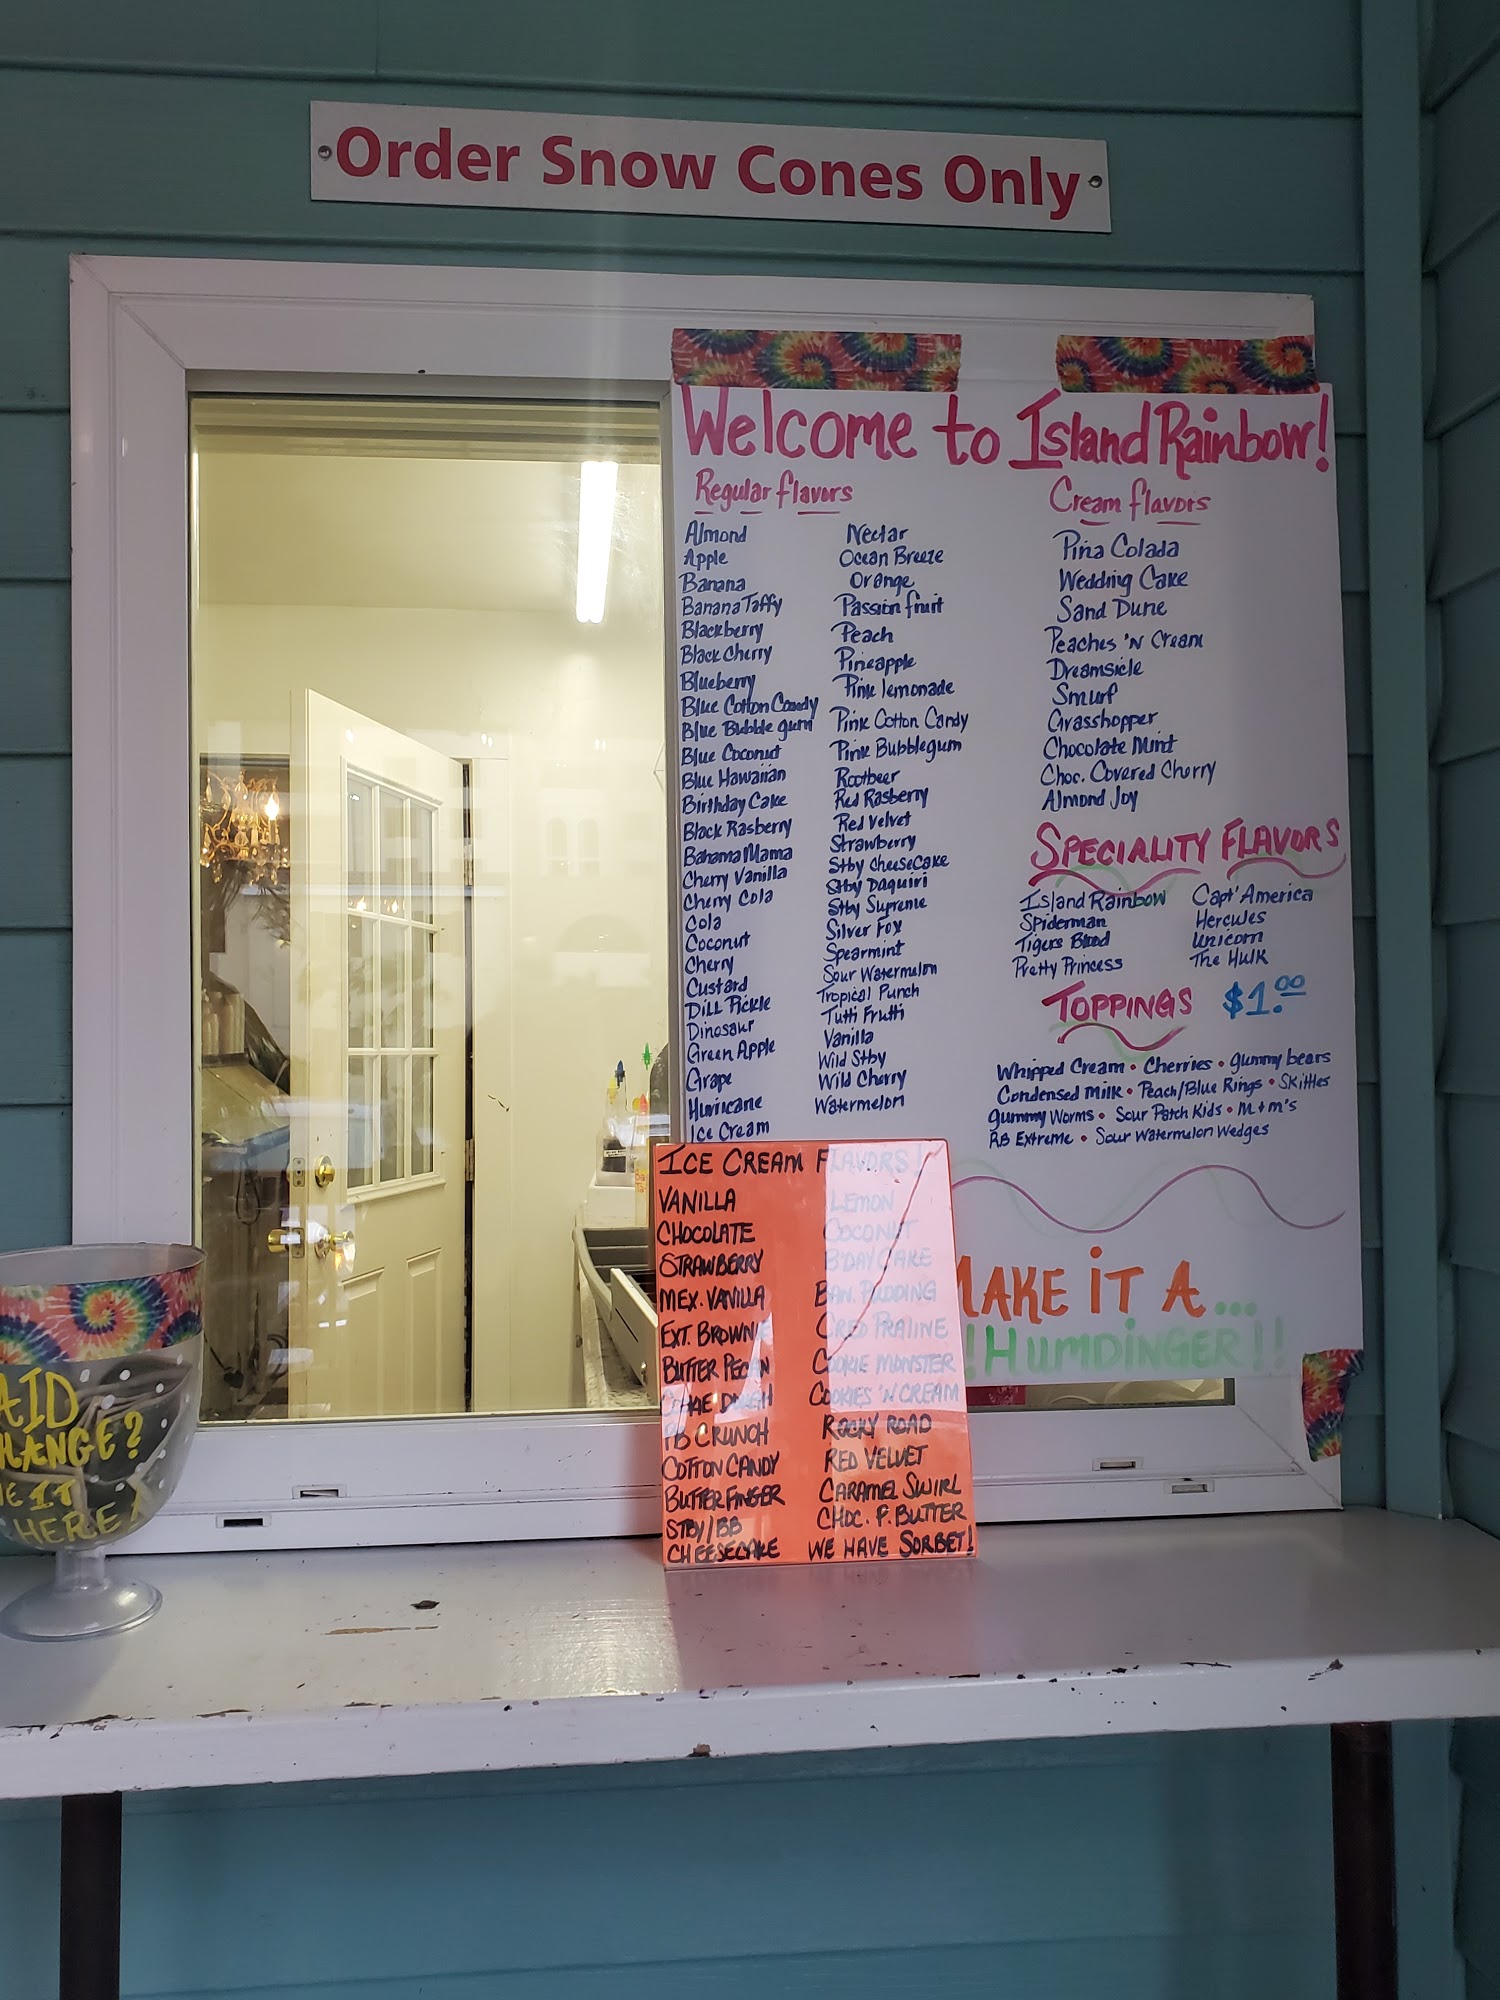 Order Snow Cones Only
Welcome to Island Rainbow!
Regular flavors
Almond
Apple
Banana
Banana Taffy
Blackberry
Black Cherry
Blueberry
Blue Cotton Candy
Blue Bubble gum
Blue Coconut
Blue Hawaiian
Birthday Cake
Black Rasberry
Bahama Mama
Cherry Vanilla
Cherry Cola
Cola
Coconut
Cherry
Custard
Dill Pickle
Dinosaur
Green Apple
Grape
Hurricane
Ice Cream
Nectar
Ocean Breeze
Orange
Passion fruit
Peach
Pineapple
Pink lemonade
Pink Cotton Candy
Pink Bubblegum
Rootbeer
Red Rasberry
Red Velvet
Strawberry
Stby Cheesecake
Stby Daquiri
Stby Supreme
Silver Fox
Spearmint
Sour Watermelon
Tropical Punch
Tutti Frutti
Vanilla
Wild Stby
Wild Cherry
Watermelon
Cream flavors
Pina Colada
Wedding Cake
Sand Dune
Peaches 'N Cream
Dreamsicle
Smurf
Grasshopper
Chocolate Mint
Choc. Covered Cherry
Almond Joy
SPECIALITY FLAVORS
Island Rainbow
Spiderman
Tigers Blood
Pretty Princess
Capt' America
Hercules
Unicorn
The Hulk
TOPPINGS $1.00
Whipped Cream • Cherries • gummy bears
Condensed Milk • Peach/Blue Rings • Skittles
gummy Worms • Sour Patch Kids • M+m's
RB Extreme • Sour Watermelon Wedges
MAKE IT A...
!!HUMDINGER!!
ICE CREAM FLAVORS!
VANILLA
CHOCOLATE
STRAWBERRY
MEX. VANILLA
EXT. BROWNIE
BUTTER PECAN
DOUGH
PB CRUNCH
COTTON CANDY
BUTTERFINGER
STBY/BB
CHEESECAKE
LEMON
COCONUT
B'DAY CAKE
BAN. PUDDING
PRALINE
COOKIE MONSTER
COOKIES 'N CREAM
ROCKY ROAD
RED VELVET
CARAMEL SWIRL
CHOC. P. BUTTER
WE HAVE SORBET!
AID
HANGE?
E IT
HERE